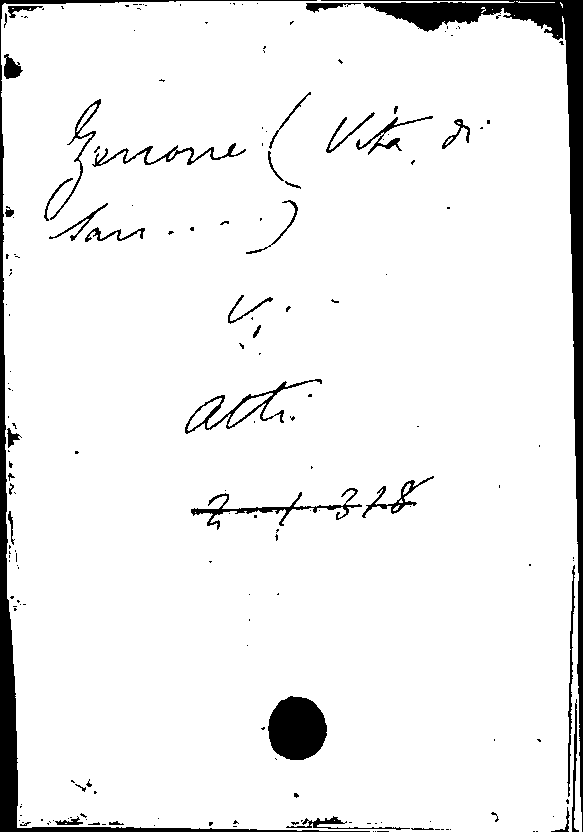 Zenone (Vita di
San .....)
V.
Atti
2.1.318